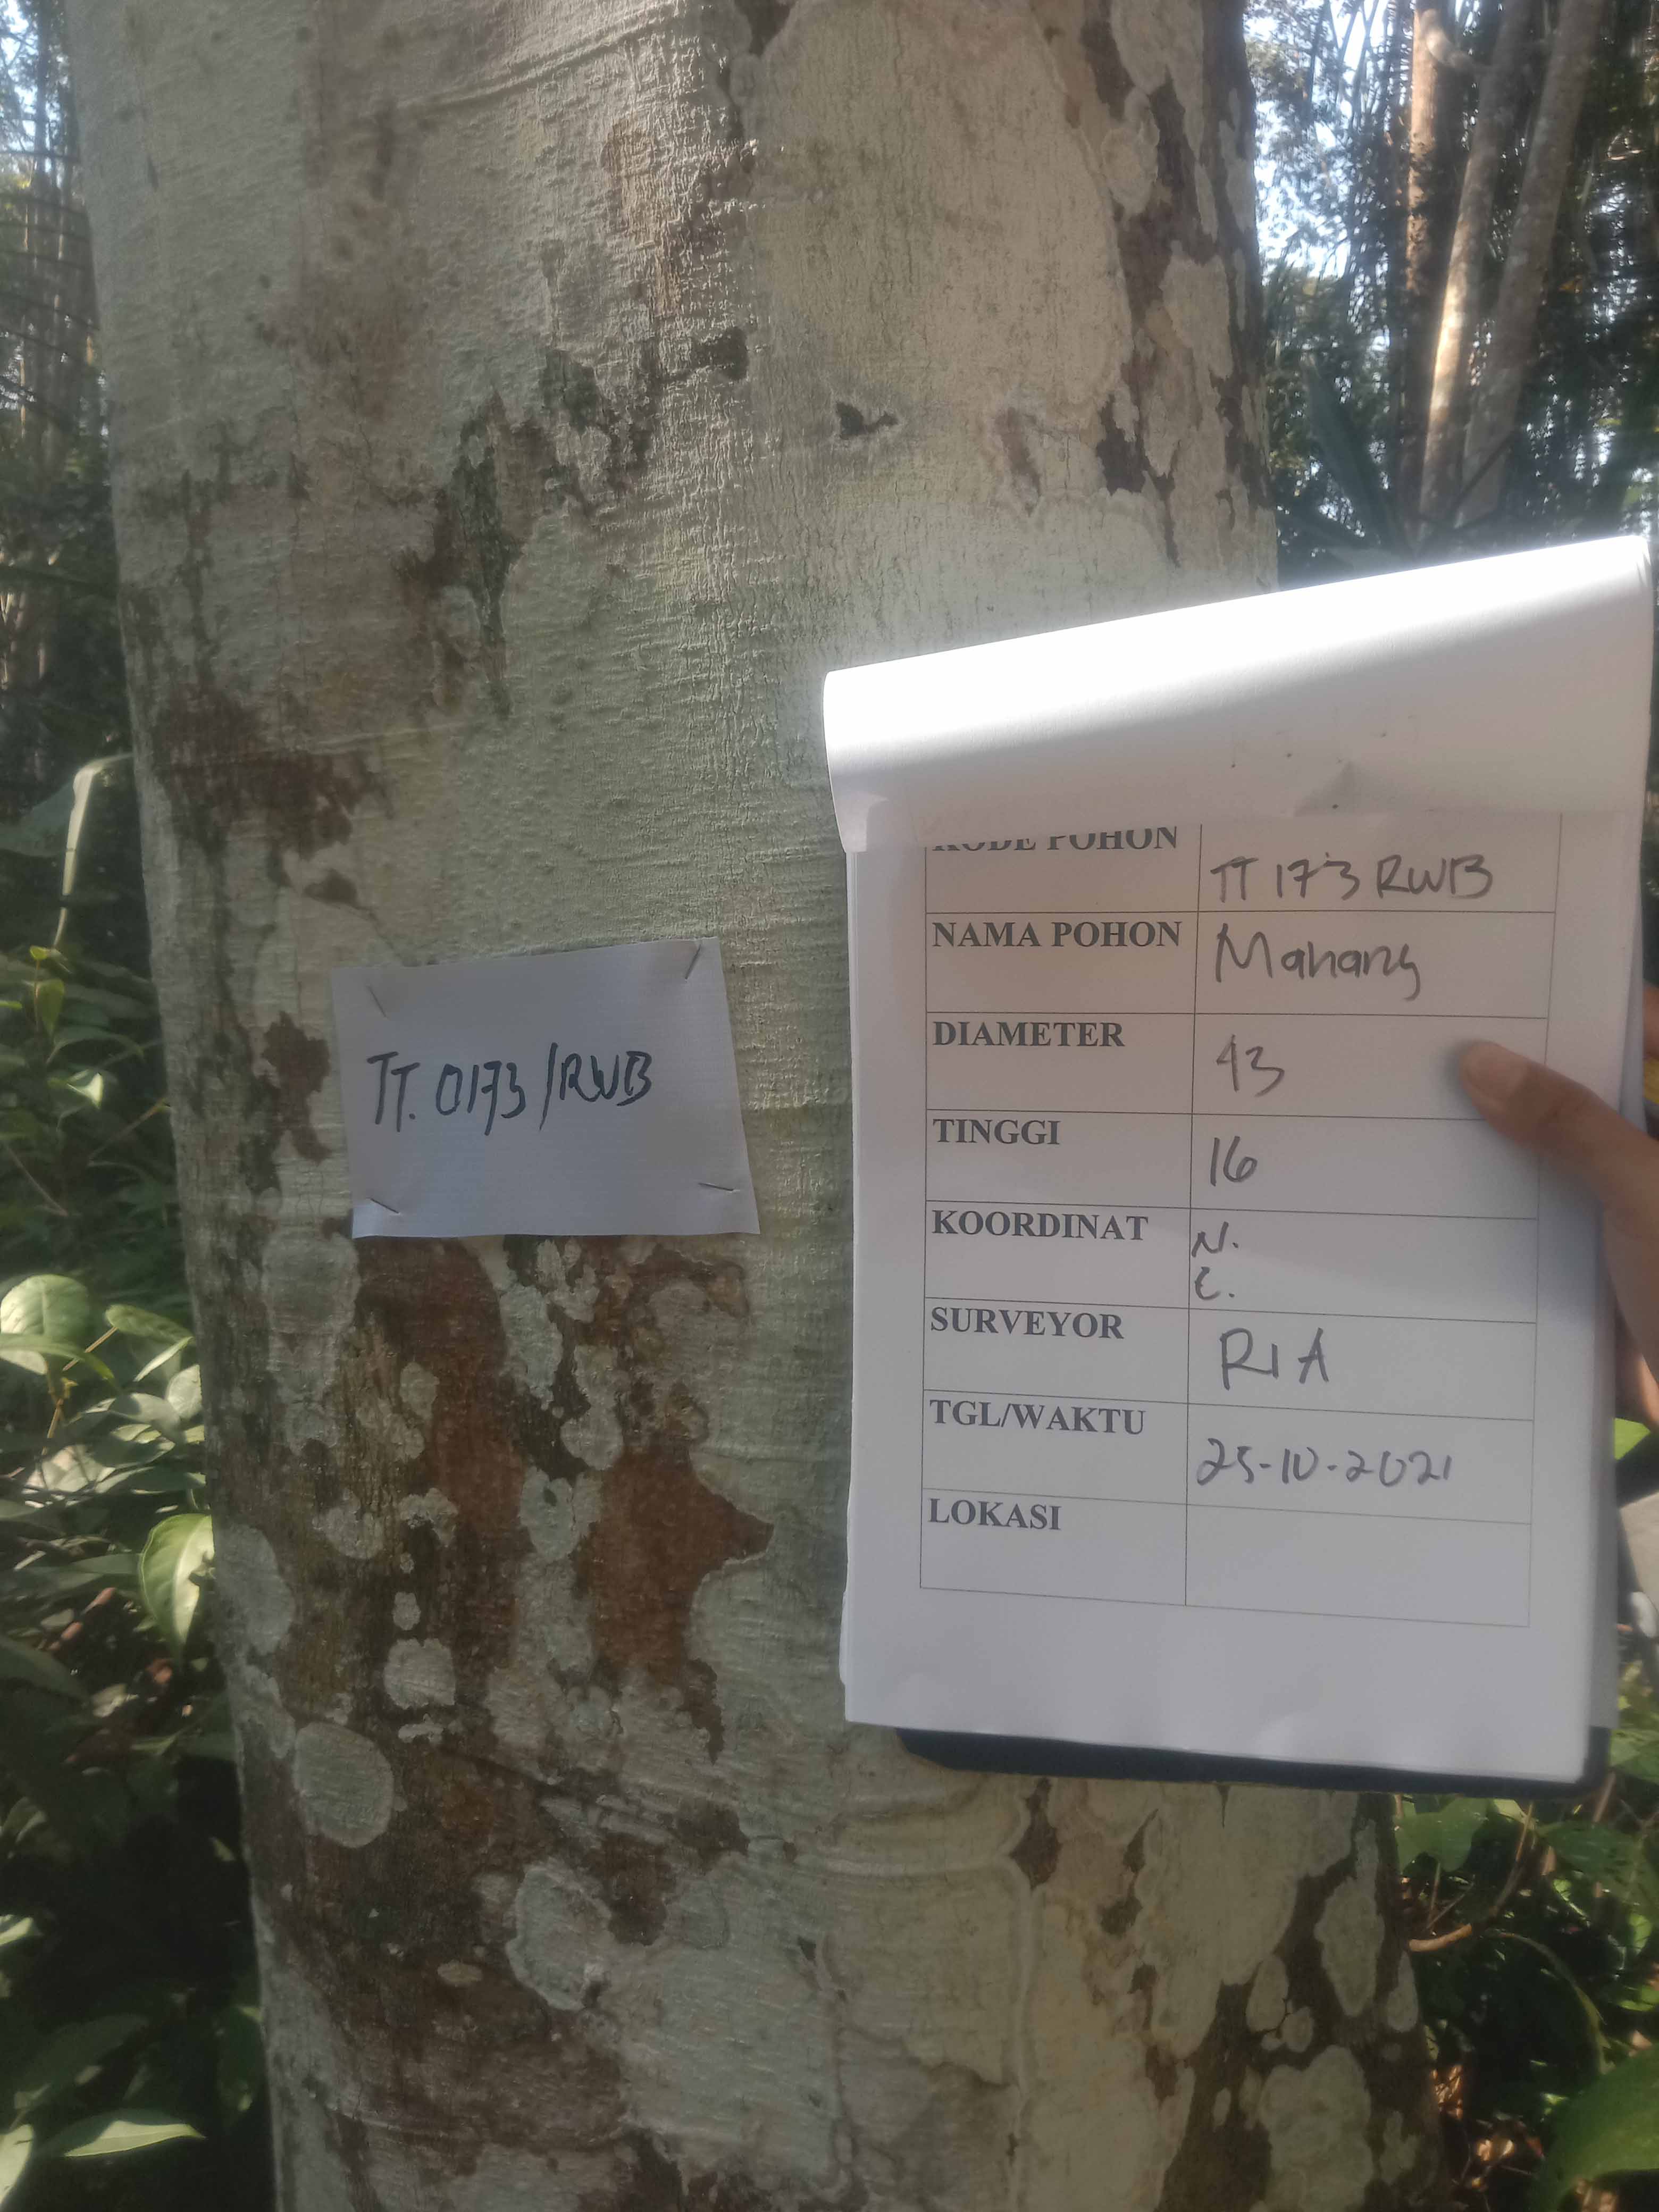 TT. 0173/RWB
KODE POHON TT 173 RWB
NAMA POHON Mahang
DIAMETER 43
TINGGI 16
KOORDINAT N.
E.
SURVEYOR RIA
TGL/WAKTU 25-10-2021
LOKASI